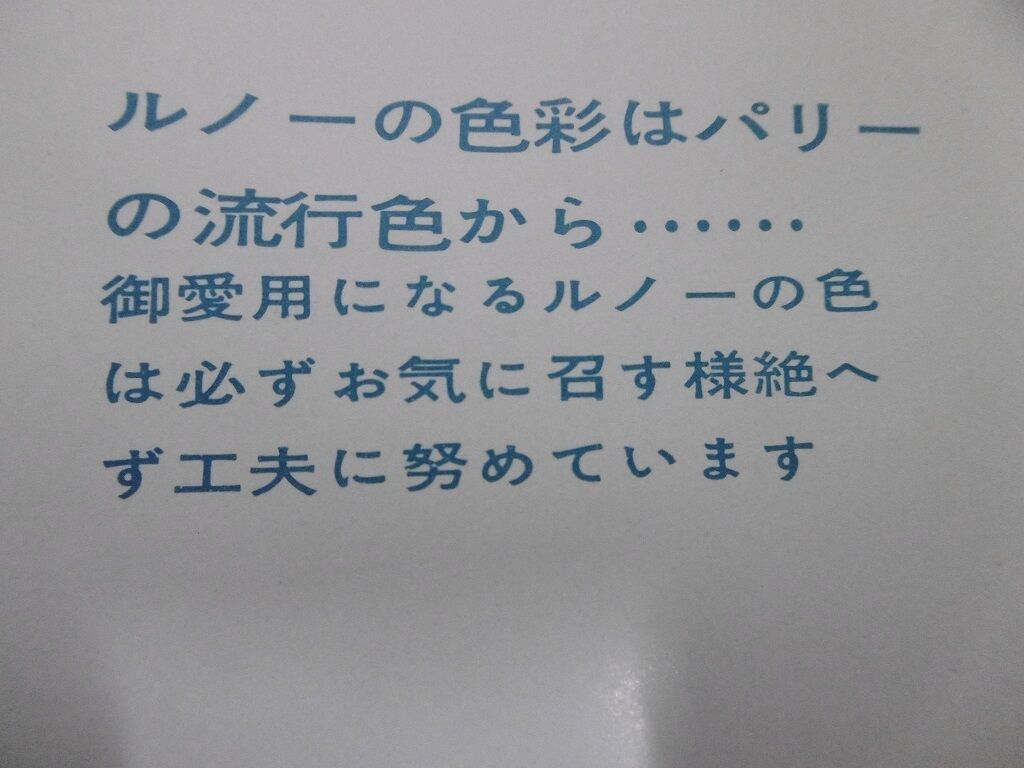 ルノーの色彩はパリー
の流行色から······
御愛用になるルノーの色
は必ずお気に召す様絶へ
ず工夫に努めています